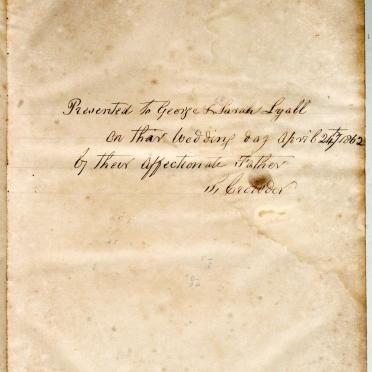 Presented to George & Sarah Lyall
on thair Wedding day April 24th 1862
by their Affectionate Father
Crowder